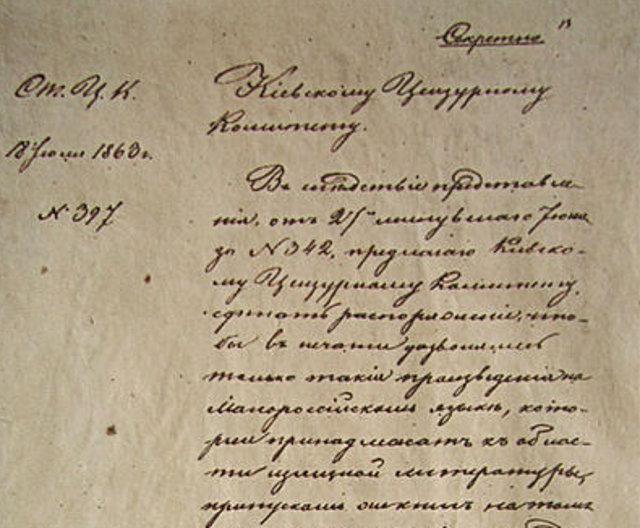 Секретно
От. Ц. К.
18 Июля 1863 г.
№ 397
Кіевскому Цензурному
Комитету.
Въ слѣдствіе представле-
нія, отъ 27 минувшаго Іюня
за № 342, предлагаю Кіевско-
му Цензурному Комитету,
сдѣлать распоряженіе, что-
бы въ печати дозволялись
только такія произведенія на
Малороссійскомъ языкѣ, кото-
рыя принадлежатъ къ облас-
ти изящной литературы,